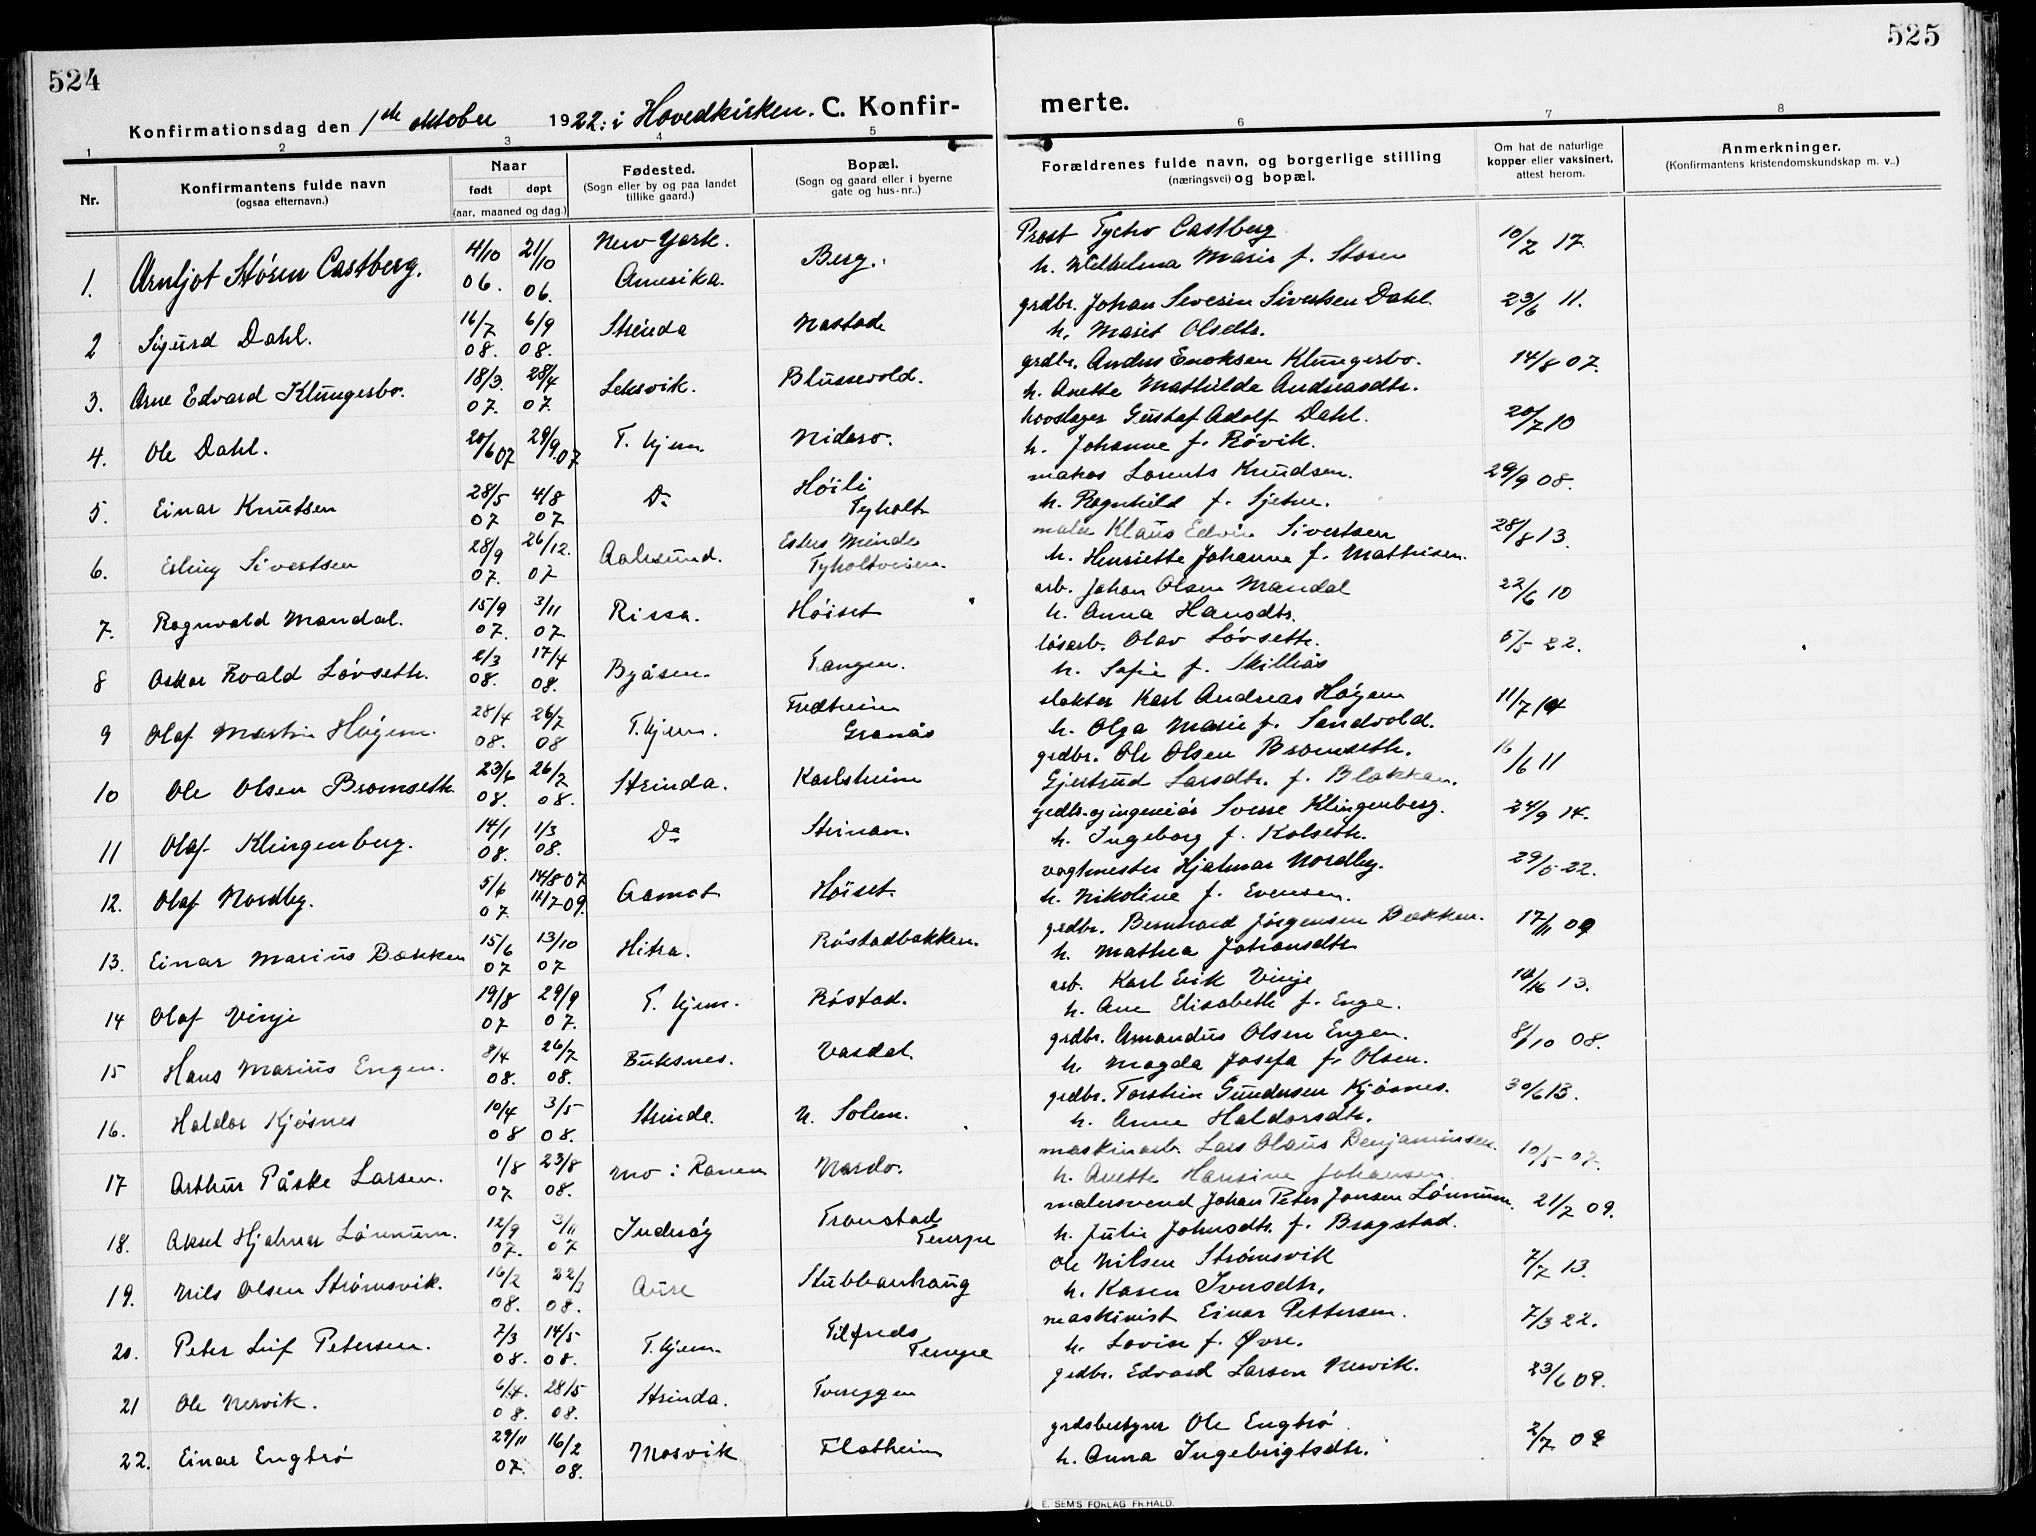 524
525
Konfirmationsdag den 1ste oktober 1922: i Hovedkirken. C. Konfir- merte.
1 2 3 4 5 6 7 8
Nr.
Konfirmantens fulde navn
(ogsaa efternavn.)
Naar
født døpt
(aar, maaned og dag.)
Fødested.
(Sogn eller by og paa landet
tillike gaard.)
Bopæl.
(Sogn og gaard eller i byerne
gate og hus-nr..)
Forældrenes fulde navn, og borgerlige stilling
(næringsvei) og bopæl.
Om hat de naturlige
kopper eller vaksinert,
attest herom.
Anmerkninger.
(Konfirmantens kristendomskundskap m. v..)
1. Arnljot Støren Castberg. 4/10 06. 21/10 06. New York. Amerika. Berg.
Prost Tycho Castberg 10/7 17.
h. Wilhelmine Marie f. Støren
2 Sigurd Dahl. 16/7 08. 6/9 08. Strinda Nastad
grdbr. Johan Severin Sivertsen Dahl. 23/6 11.
h. Marit Olsdtr.
3. Arne Edvard Klungerbo. 18/3. 07. 28/4 07. Leksvik. Blussevold.
grdbr. Anders Enoksen Klungerbo. 14/8 07.
h. Anette Mathilde Andreasdtr.
4. Ole Dahl. 20/6 07 29/9. 07 T. hjem Nidaro.
hovslager Gustaf Adolf Dahl. 20/7 10
h. Johanne f. Røvik.
5. Einar Knutsen 28/5 07 4/8 07 Do Høili Tyholt
matros Lorents Knudsen. 29/9 08.
h. Ragnhild f. Sjetne.
6. Erling Sivertsen 28/9 07. 26/12. 07 Aalesund. Esters Minde Tyholtveien.
maler Klaus Edvin Sivertsen 28/8 13.
h. Henriette Johanne f. Mathisen.
7. Ragnvald Mandal. 15/9 07. 3/11 07. Rissa. Høiset
arb. Johan Olsen Mandal 22/6 10
h. Anna Hansdtr.
8 Oskar Roald Løvseth. 2/3 08. 17/4 08. Byåsen. Tangen.
løsarb. Olav Løvseth. 5/5 22.
h. Sofie f. Skilliås
9 Olaf Martin Høgem. 28/4 08. 26/7 08 T.hjem. Fredheim Granås
slakter Karl Andreas Høgem 11/7 14
h. Olga Marie f. Sandvold.
10 Ole Olsen Bromseth 23/6 08. 26/7 08. Strinda. Karlsheim
grdbr. Ole Olsen Bromseth. 16/6 11
Gjertrud Larsdtr. f. Blakkan.
11 Olaf Klingenberg. 14/1 08. 1/3 08. Do Strinan.
grdbr. og ingeniør Sverre Klingenberg. 24/9 14.
h. Ingeborg f. Kolseth.
12. Olaf Nordby. 5/6 07. 14/8 07 11/7 09. Aamot Høiset.
vagtmester Hjalmar Nordby. 29/5 22.
h. Nikoline f. Evensen.
13. Einar Marius Bækken 15/6 07 13/10 07 Hitra. Røstadbakken.
grdbr. Bernhard Jørgensen Bækken. 17/11 09
h. Mathea Johansdtr
14 Olaf Vinje 19/8 07 29/9 07. T. hjem. Røstad.
arb. Karl Erik Vinje 13.
h. Ane Elisabeth f. Enge.
15 Hans Marius Engen. 8/4 08. 26/7 08. Buksnes. Vasdal.
grdbr. Amandus Olsen Engen. 8/10 08.
h. Magda Josefa f. Olsen.
16. Haldor Kjøsnes 10/4 08 3/5 08. Strinda. N. Solem.
grdbr. Torstein Gundersen Kjøsnes. 30/6 13.
h. Anne Haldorsdtr.
17 Arthur Påske Larsen. 1/8 07. 23/8 08. Mo i Ranen Nardo.
maskinarb. Lars Olaus Benjaminsen. 10/5 07.
h. Anette Hansine Johansen
18. Aksel Hjalmar Lønnum. 12/9 07. 3/11 07 Inderøy Tronstad Tempe
malersvend Johan Peter Jonsen Lønnum. 21/7 09.
h. Julie Johnsdtr. f. Bragstad.
19. Nils Olsen Strømsvik. 16/2 08. 22/3 08. Aure Stubbanhaug
Ole Nilsen Strømsvik 7/7 13.
h. Karen Iversdtr.
20. Peter Leif Petersen. 7/3 08. 14/5 08. T.hjem Tilfreds Tempe
maskinist Einar Pettersen. 7/3 22.
h. Lovise f. Øvre.
21 Ole Nervik. 6/4. 08. 28/5 08. Strinda. Tvereggen
grdbr. Edvard Larsen Nervik. 23/6 09.
22. Einar Engbrø 29/11 07. 16/2 08. Mosvik Flatheim
grdsbestyrer Ole Engbrø 2/7 09
h. Anna Ingebrigtsdtr.
E. SEM'S FORLAG FR.HALD.